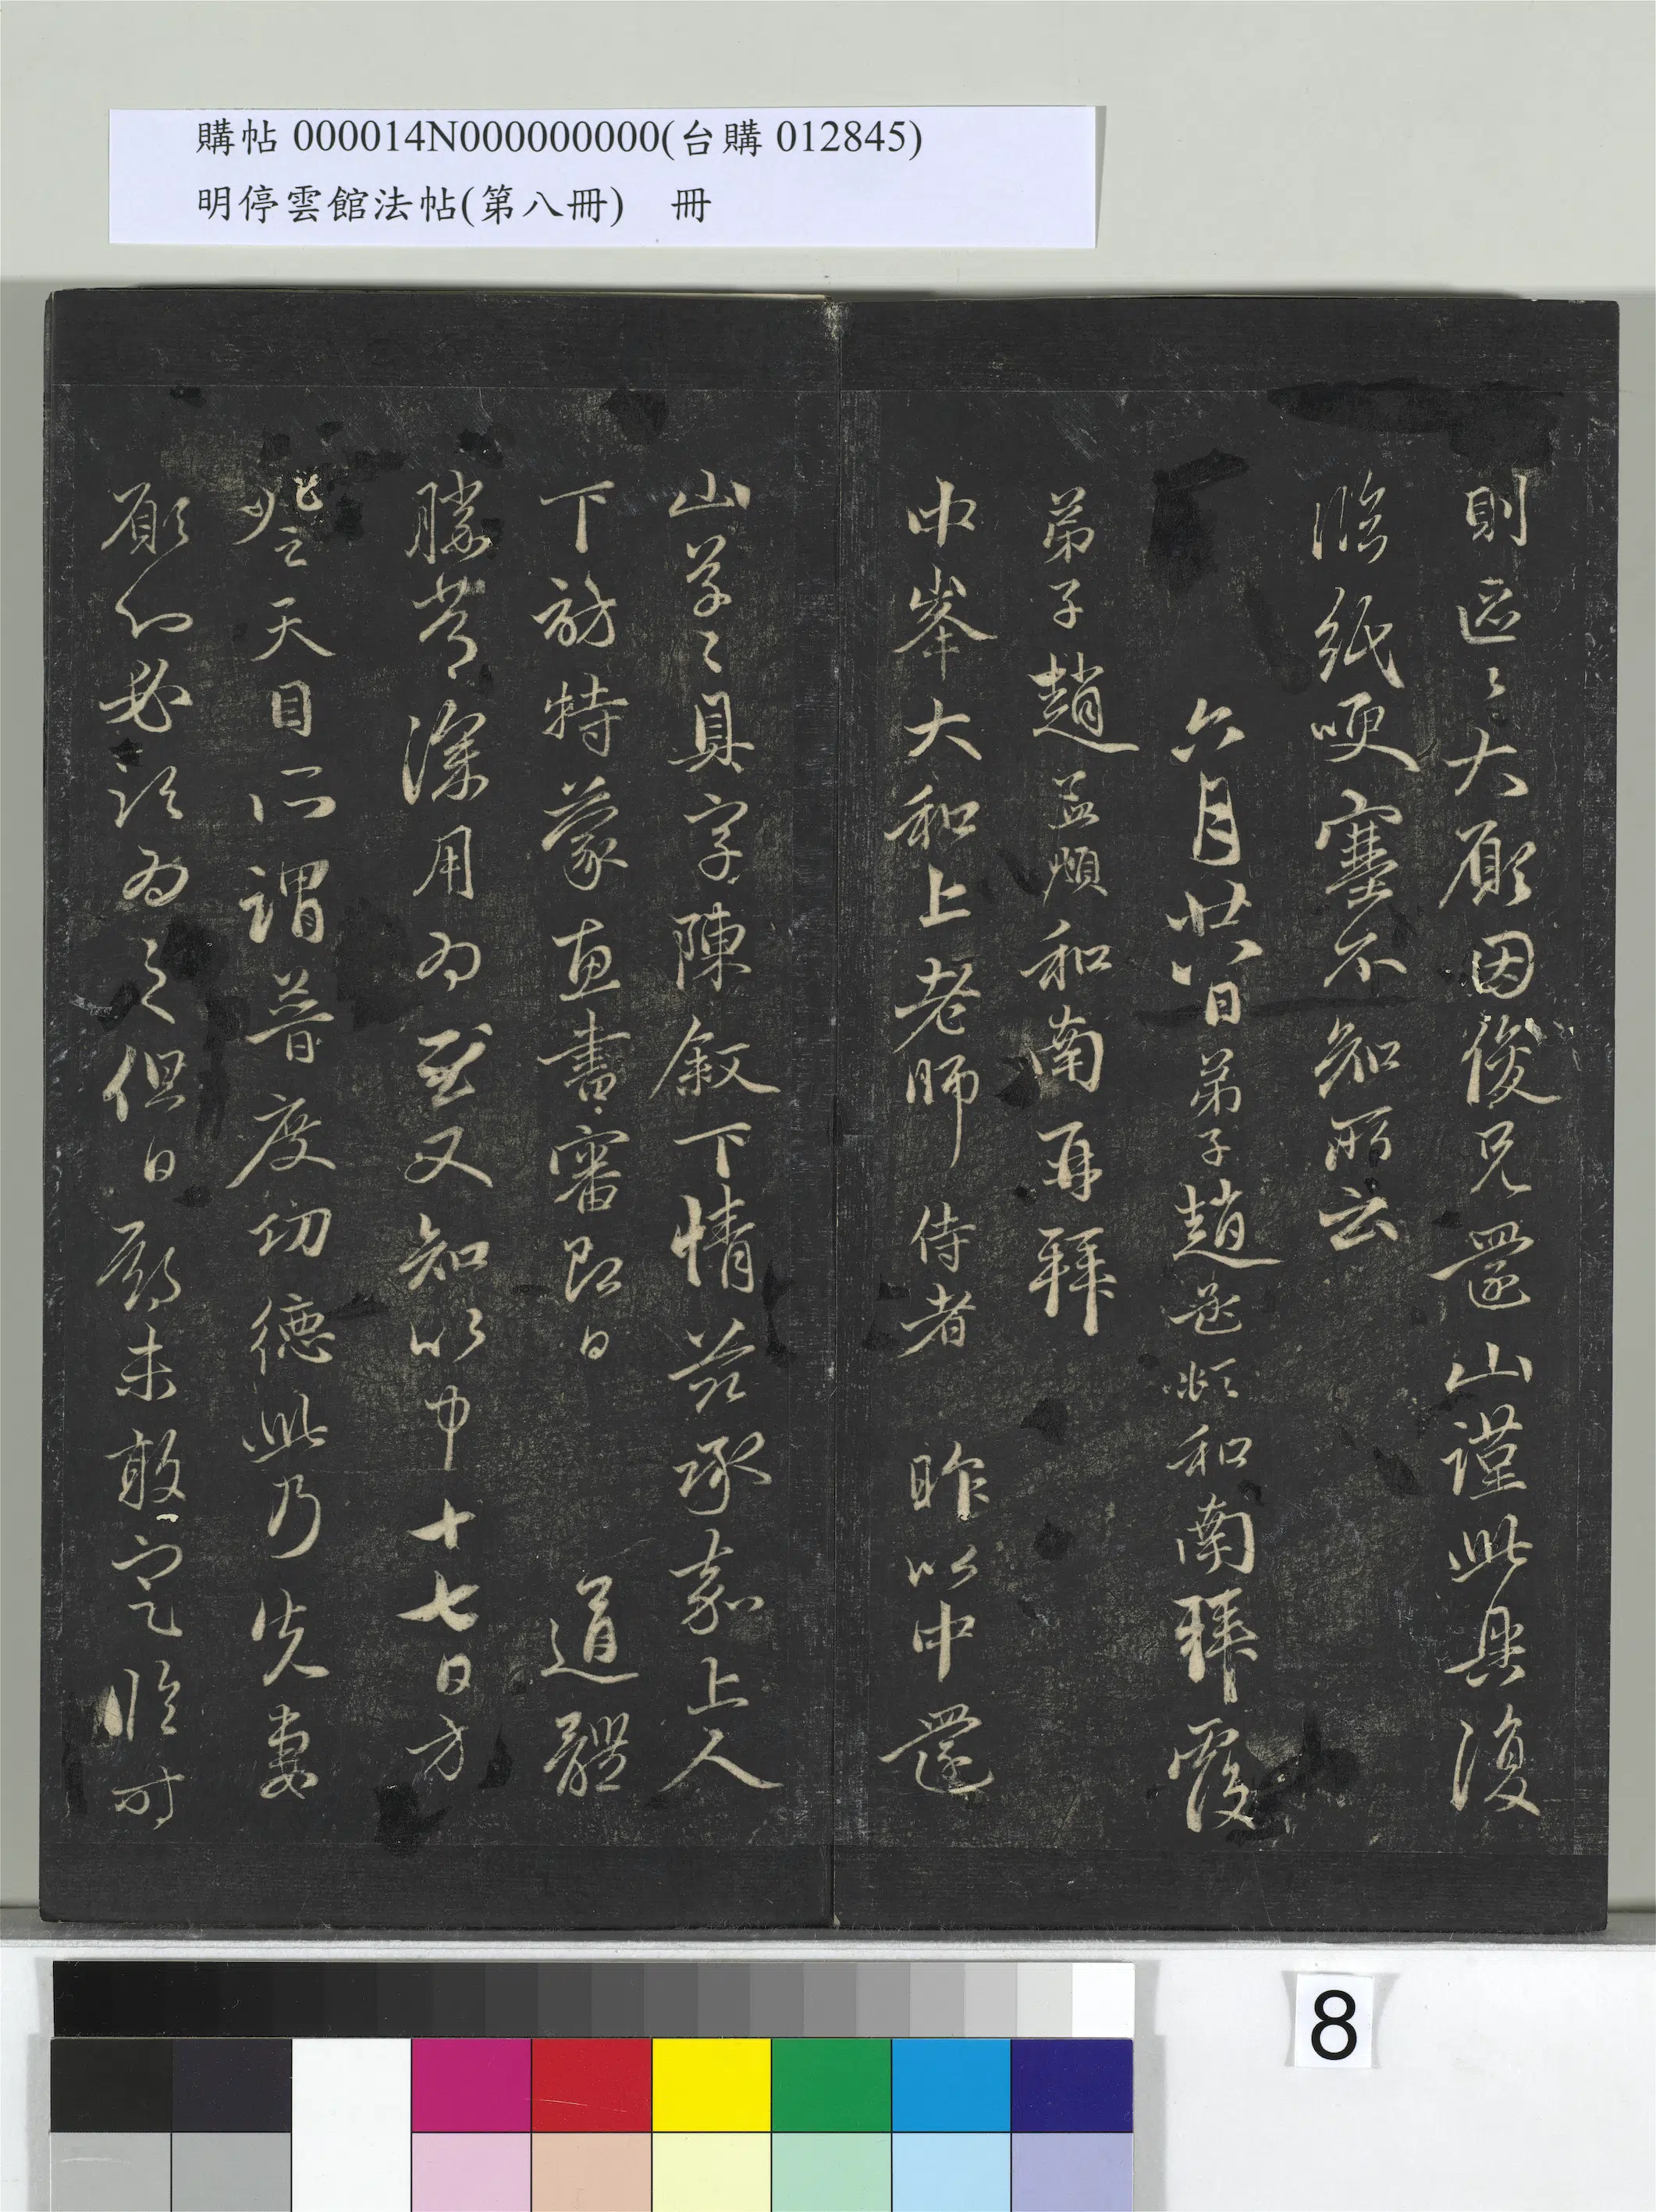 購帖 000014N000000000(台購 012845)
明停雲館法帖(第八冊) 冊
則區々大願因俊兄還山謹此具復
臨紙哽塞不知所云
六月廿八日弟子趙孟頫和南拜覆
弟子趙孟頫和南再拜
中峯大和上老師侍者 昨以中還
山草々具字陳敘下情茲承嘉上人
下訪特蒙惠書審即日 道體
勝常深用為慰又知以中十七日方
登天目所謂普度功德此乃先妻
願心必須為之但日未敢定臨時
8